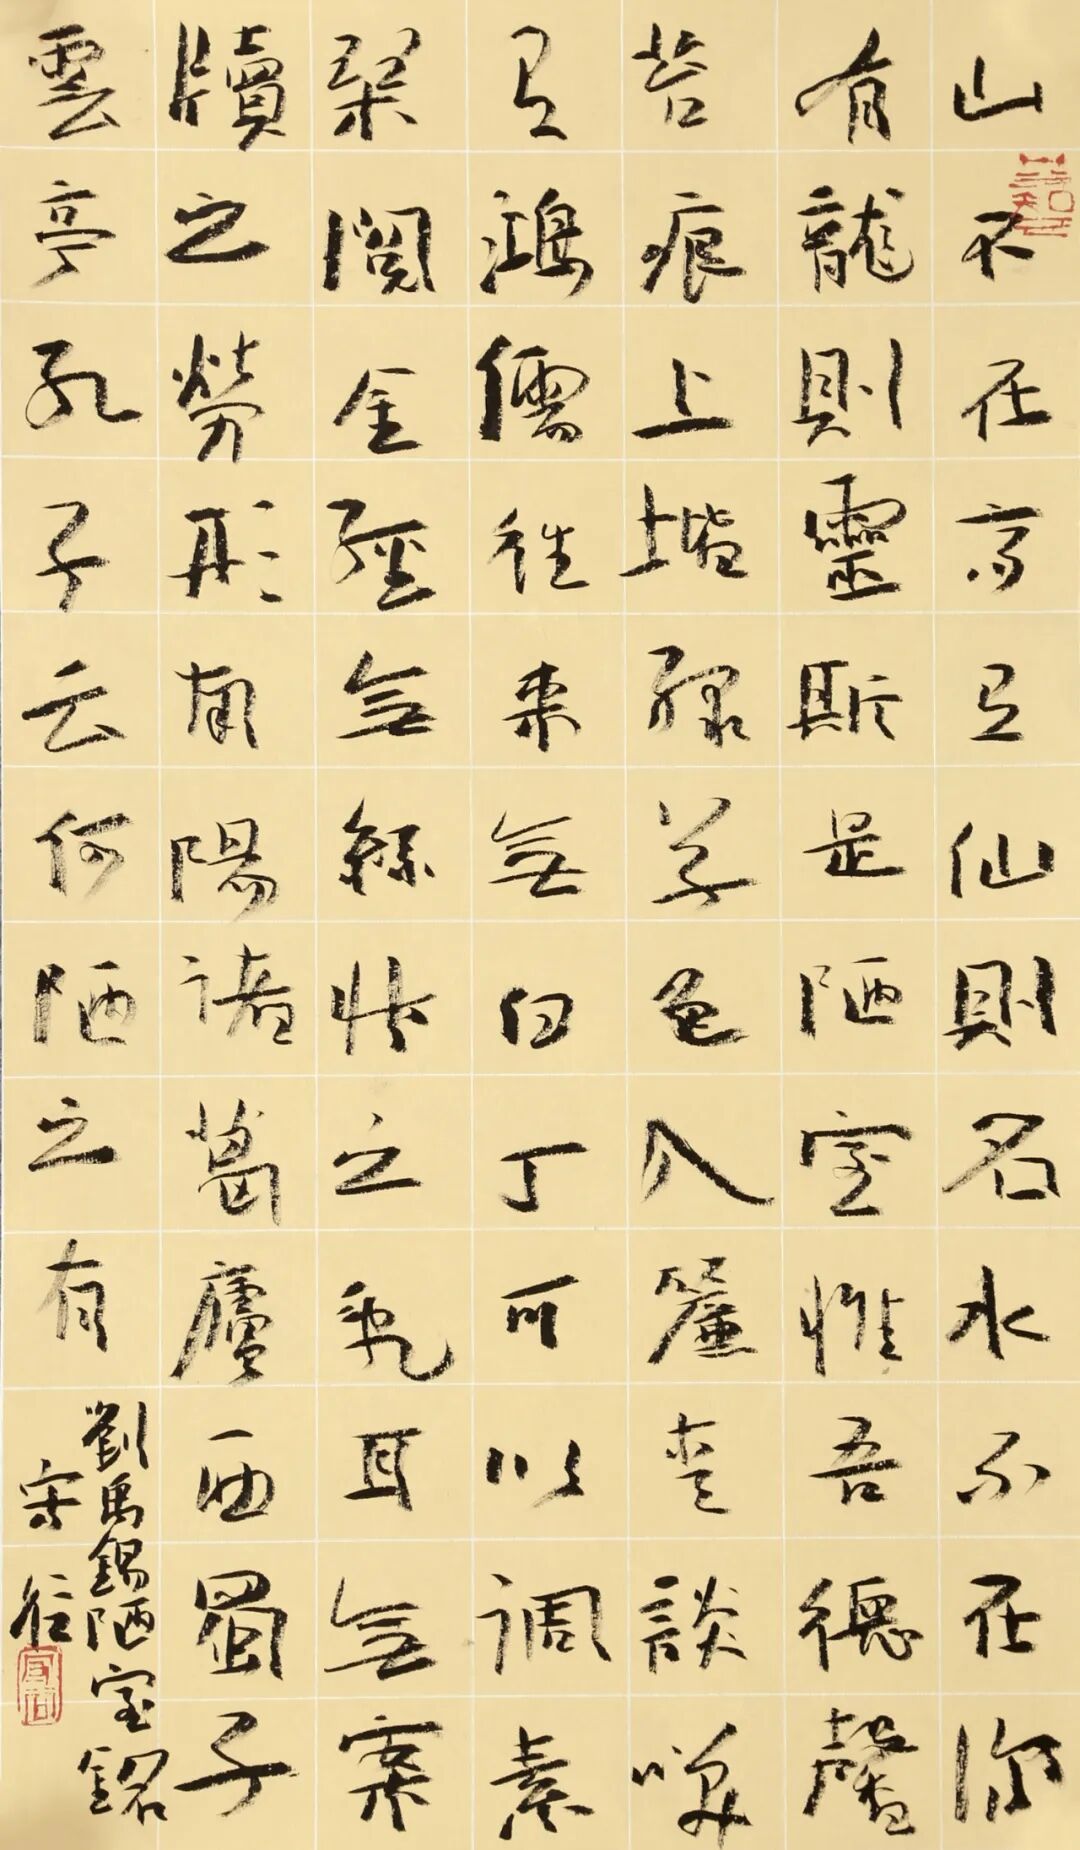 山不在高有仙則名水不在深
有龍則靈斯是陋室惟吾德馨
苔痕上堦綠草色入簾青談咲
有鴻儒往來無白丁可以調素
琴閱金經無絲竹之亂耳無案
牘之勞形南陽諸葛廬西蜀子
雲亭孔子云何陋之有
劉禹錫陋室銘
宋